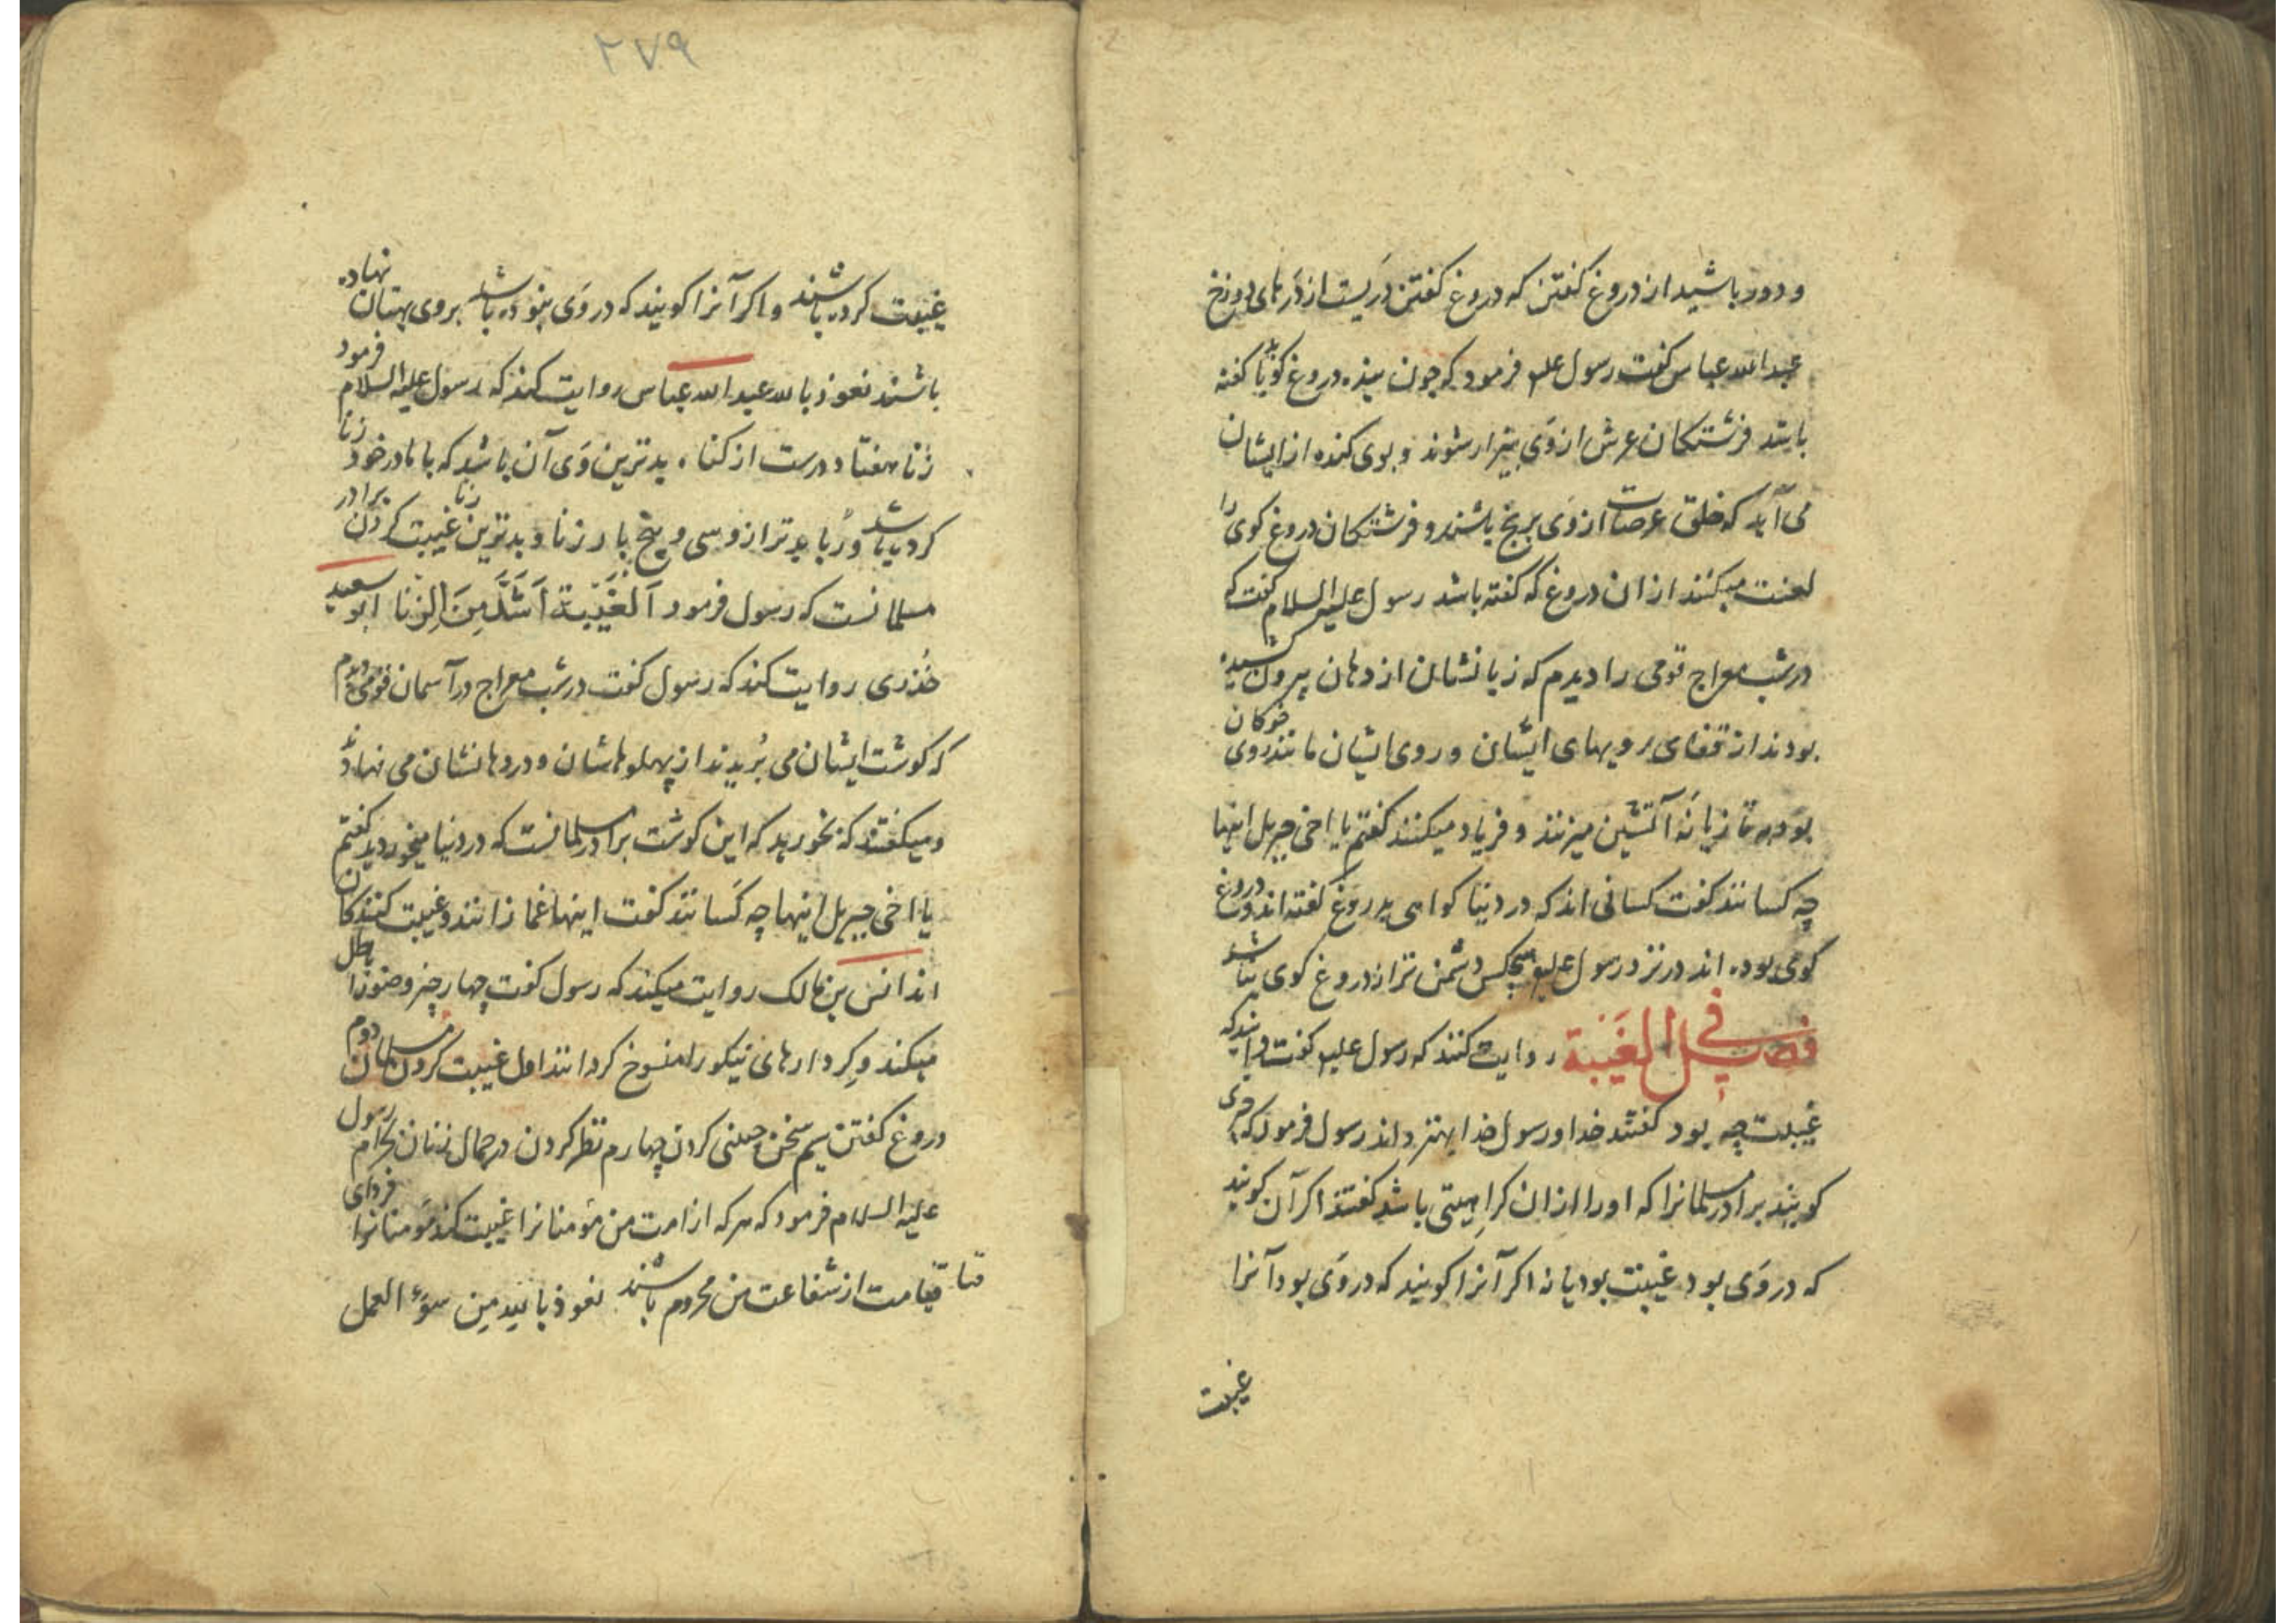 و دور باشید از دروغ کفتن که دروغ کفتن دَریست از دَرهای دوزخ
عبد الله عباس کفت رسول علیه فرمود که چون بنده دروغ کویا کفته
باشد فرشتکان عرش از وَی بیزار شوند و بوی کنده از ایشان
می آید که خلق عرصات از وَی برنج باشند و فرشتکان دروغ کوی را
لعنت میکنند از ان دروغ که کفته باشد رسول علیه السلام کفت که
در شب معراج قومی را دیدم که زبانشان از دهان بیرون کشیده
بودند از قفای رویهای ایشان و روی ایشان مانند روی خوکان
بود تازیانهٔ آتشین میزنند و فریاد میکنند کفتم یا اخی جبریل اینها
چه کسانند کفت کسانی اند که در دنیا کواهی بدروغ کفته اند و دروغ
کوی بوده اند در نزد رسول علیه هیچکس دشمن تر از دروغ کوی نباشد
فصل فی الغَیبَة روایت کنند که رسول علیه کفت دانید که
غیبت چه بود کفتند خدا و رسول خدا بهتر داند رسول فرمود که
کویند برادر مسلمانرا که اورا از ان کراهیتی باشد کفتند اکر آن کویند
که در وَی بود غیبت بود یا نه اکر آنرا کویند که در وَی بود آنرا
غیبت
۲۷۹
غیبت کرده باشند و اکر آنرا کویند که در وَی نبوده باشد بروی بهتان نهاده
باشند نعوذ بالله عبد الله عباس روایت کند که رسول علیه السلام فرمود
زنا هفتاد درست از کناه بدترین وَی آن باشد که با مادر خود زنا
کرده باشد و رُبا بدتر از وسی و پنج بار زنا و بدترین زنا غیبت کردن برادر
مسلمانست که رسول فرمود اَلْغَیْبَة اَشَدَّ مِنَ الِزنا ابو سعید
خُذری روایت کند که رسول کفت در شب معراج در آسمان قومی دیدم
که کوشت ایشان می بُریدند از پهلوهاشان و در دهانشان می نهادند
و میکفتند که بخورید که این کوشت برادر مسلمانست که در دنیا میخوردید کفتم
یا اخی جبریل اینها چه کَسانند کفت اینها غمازانند و غیبت کنندکان
اند انس بن مالک روایت میکند که رسول کفت چهار چیز وضو را باطل
میکند و کِردارهای نیکو را منسوخ کرداند اول غیبت کردن مسلمانان دوم
دروغ کفتن سیم سخن چینی کردن چهارم نظر کردن در جمال زنان بحرام رسول
علیه السلام فرمود که هرکه از امت من مؤمنانرا غیبت کند مؤمنانرا فردای
قیامت از شفاعت من محروم باشند نعوذ بالله مِن سوءِ العمل